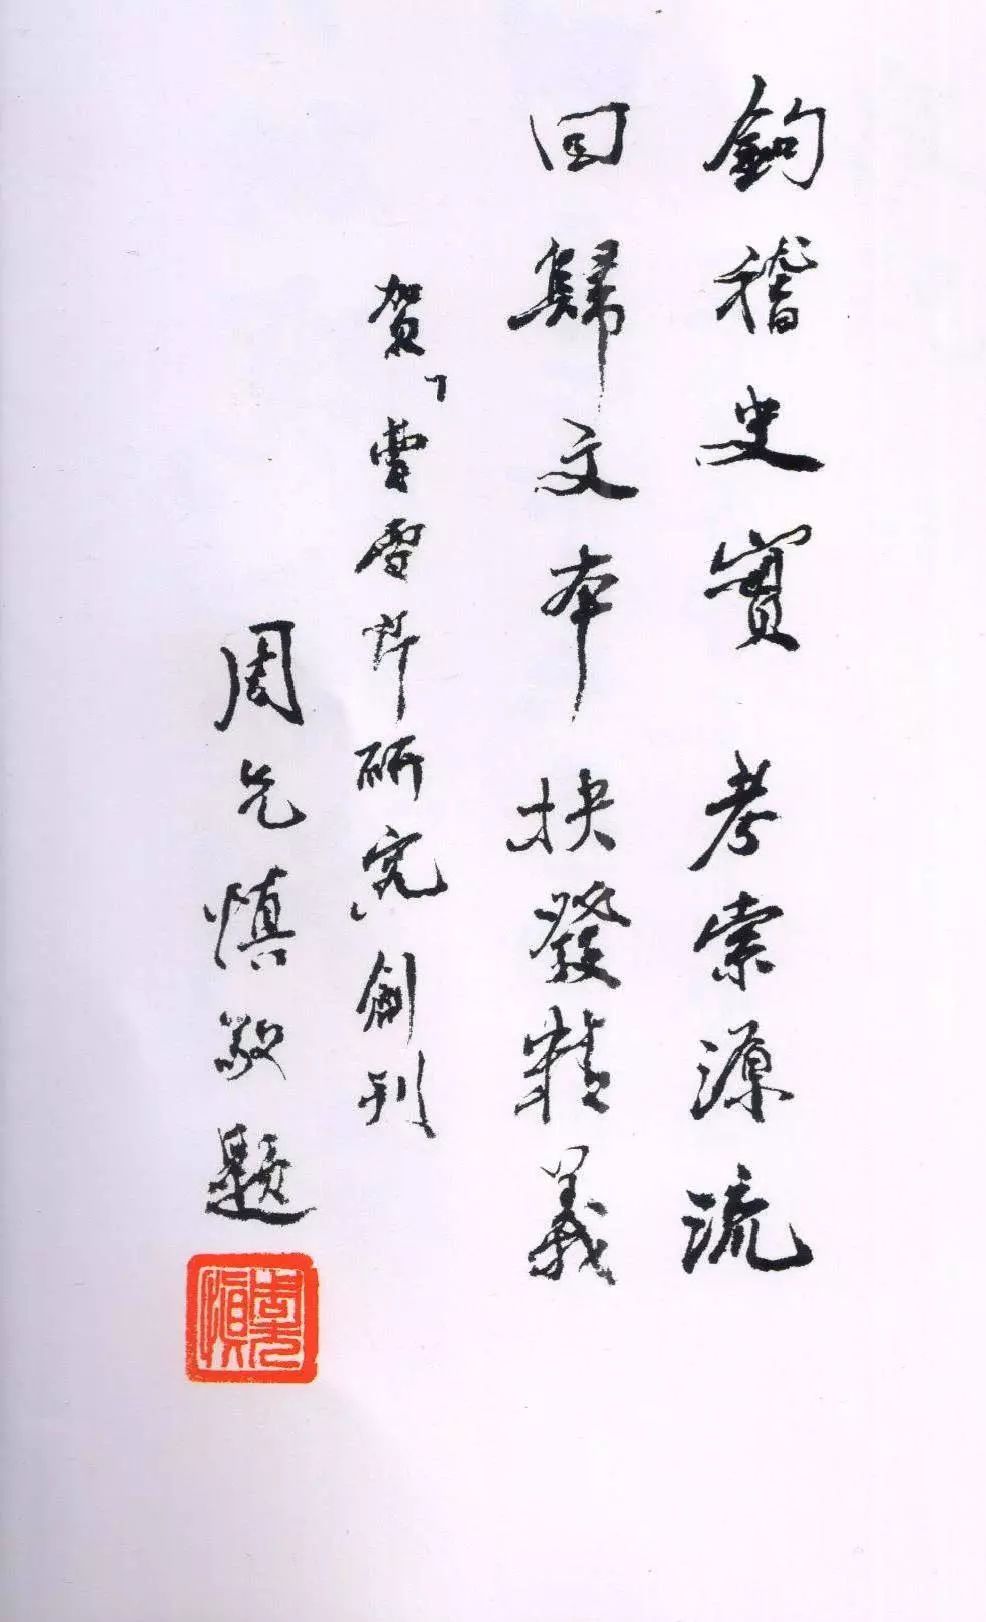 鉤稽史實 考索源流
回歸文本 抉發精義
賀《曹雪芹研究》創刊
周先慎敬題
周先慎